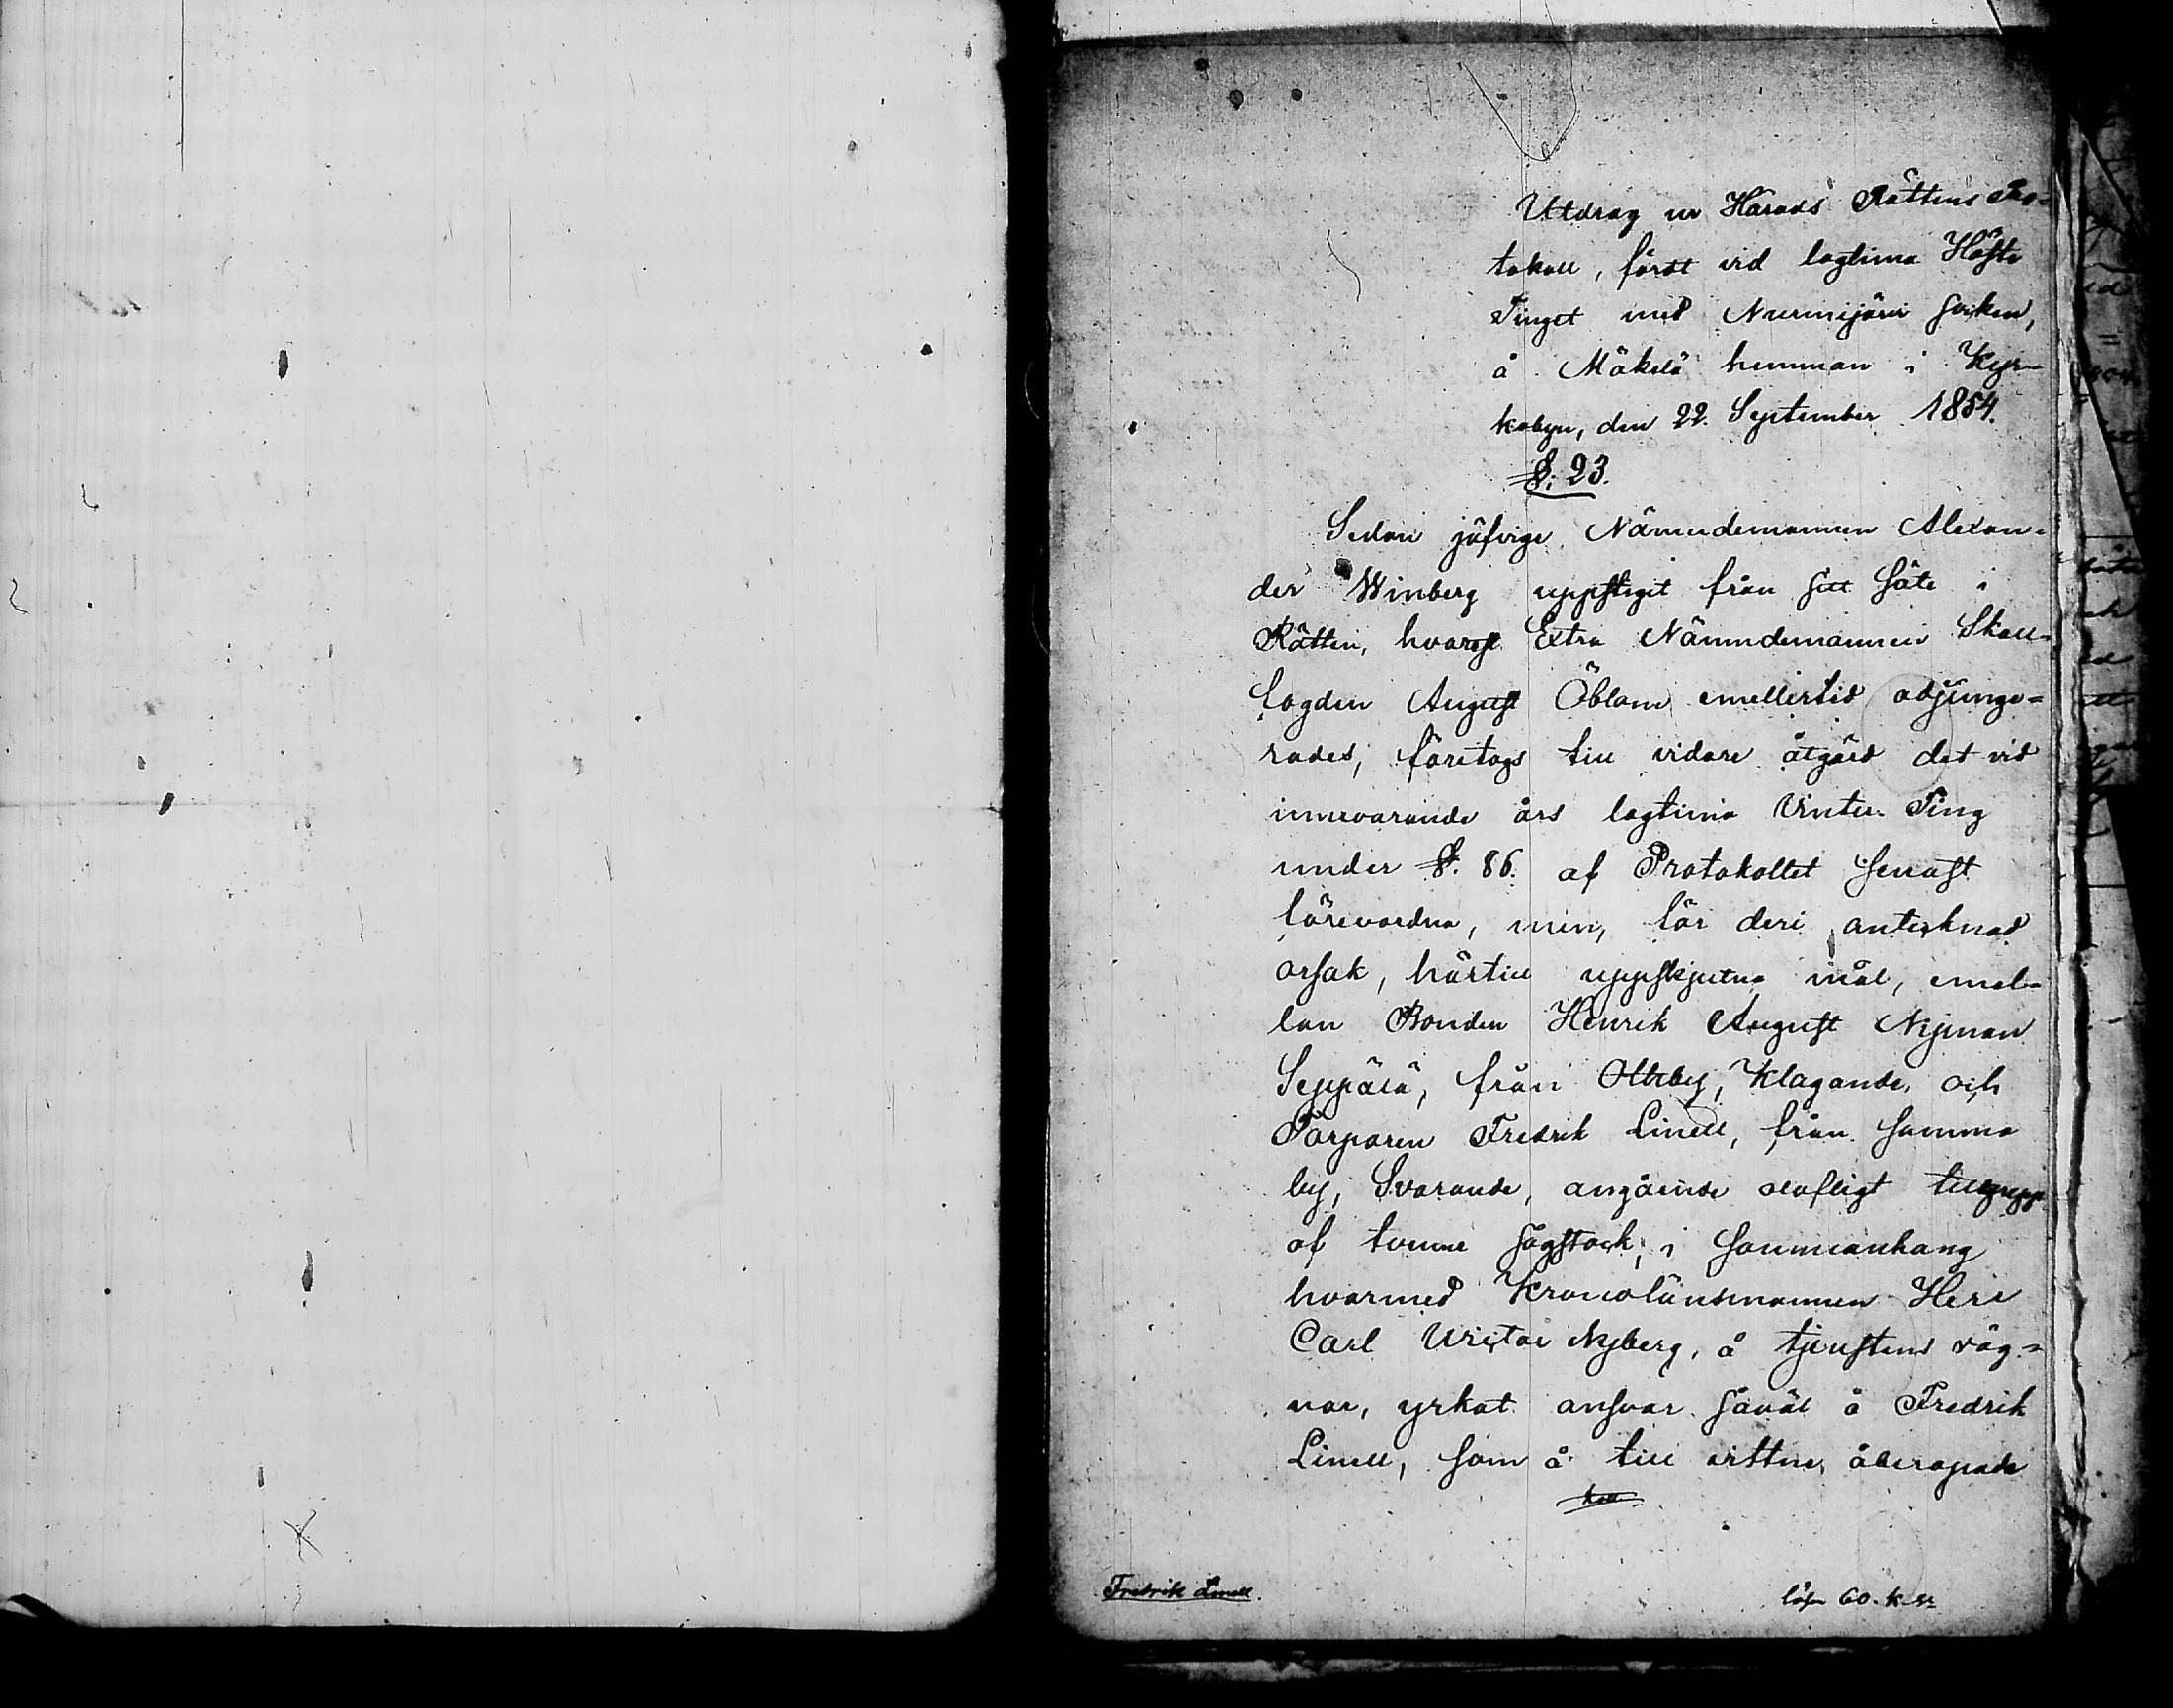 Utdrag ur Härads Rättens Pro-
tokoll, fördt vid lagtima Höste
Tinget med Nurmijärvi Socken,
å Mäkelä hemman i Kyr-
kobyn, den 22. September 1854.
§. 23.
Sedan jäfvige Nämndemannen Alexan-
der Winberg uppstigit från sitt säte i
Rätten, hvarest Extra Nämndemannen Skall-
fogden August Öblom emellertid adjunge-
rades, företogs till vidare åtgärd det vid
innevarande års lagtima Vinter Ting
under §. 86. af Protokollet senast
förevordna, men, för deri antecknad
orsak, härtill uppskjutna mål, emel-
lan Bonden Henrik August Nyman
Seppälä, från Ollisby, Klagande, och
Torparen Fredrik Linell, från samma
by, Svarande, angående olofligt tillgrepp
af tvenne sågstock, i sammanhang
hvarmed Kronolänsmannen Herr
Carl Victor Nyberg, å tjenstens väg-
nar, yrkat ansvar såväl å Fredrik
Linell, som å till vittne åberopade
Fredrik Linell.
lösen 60. k. Sr